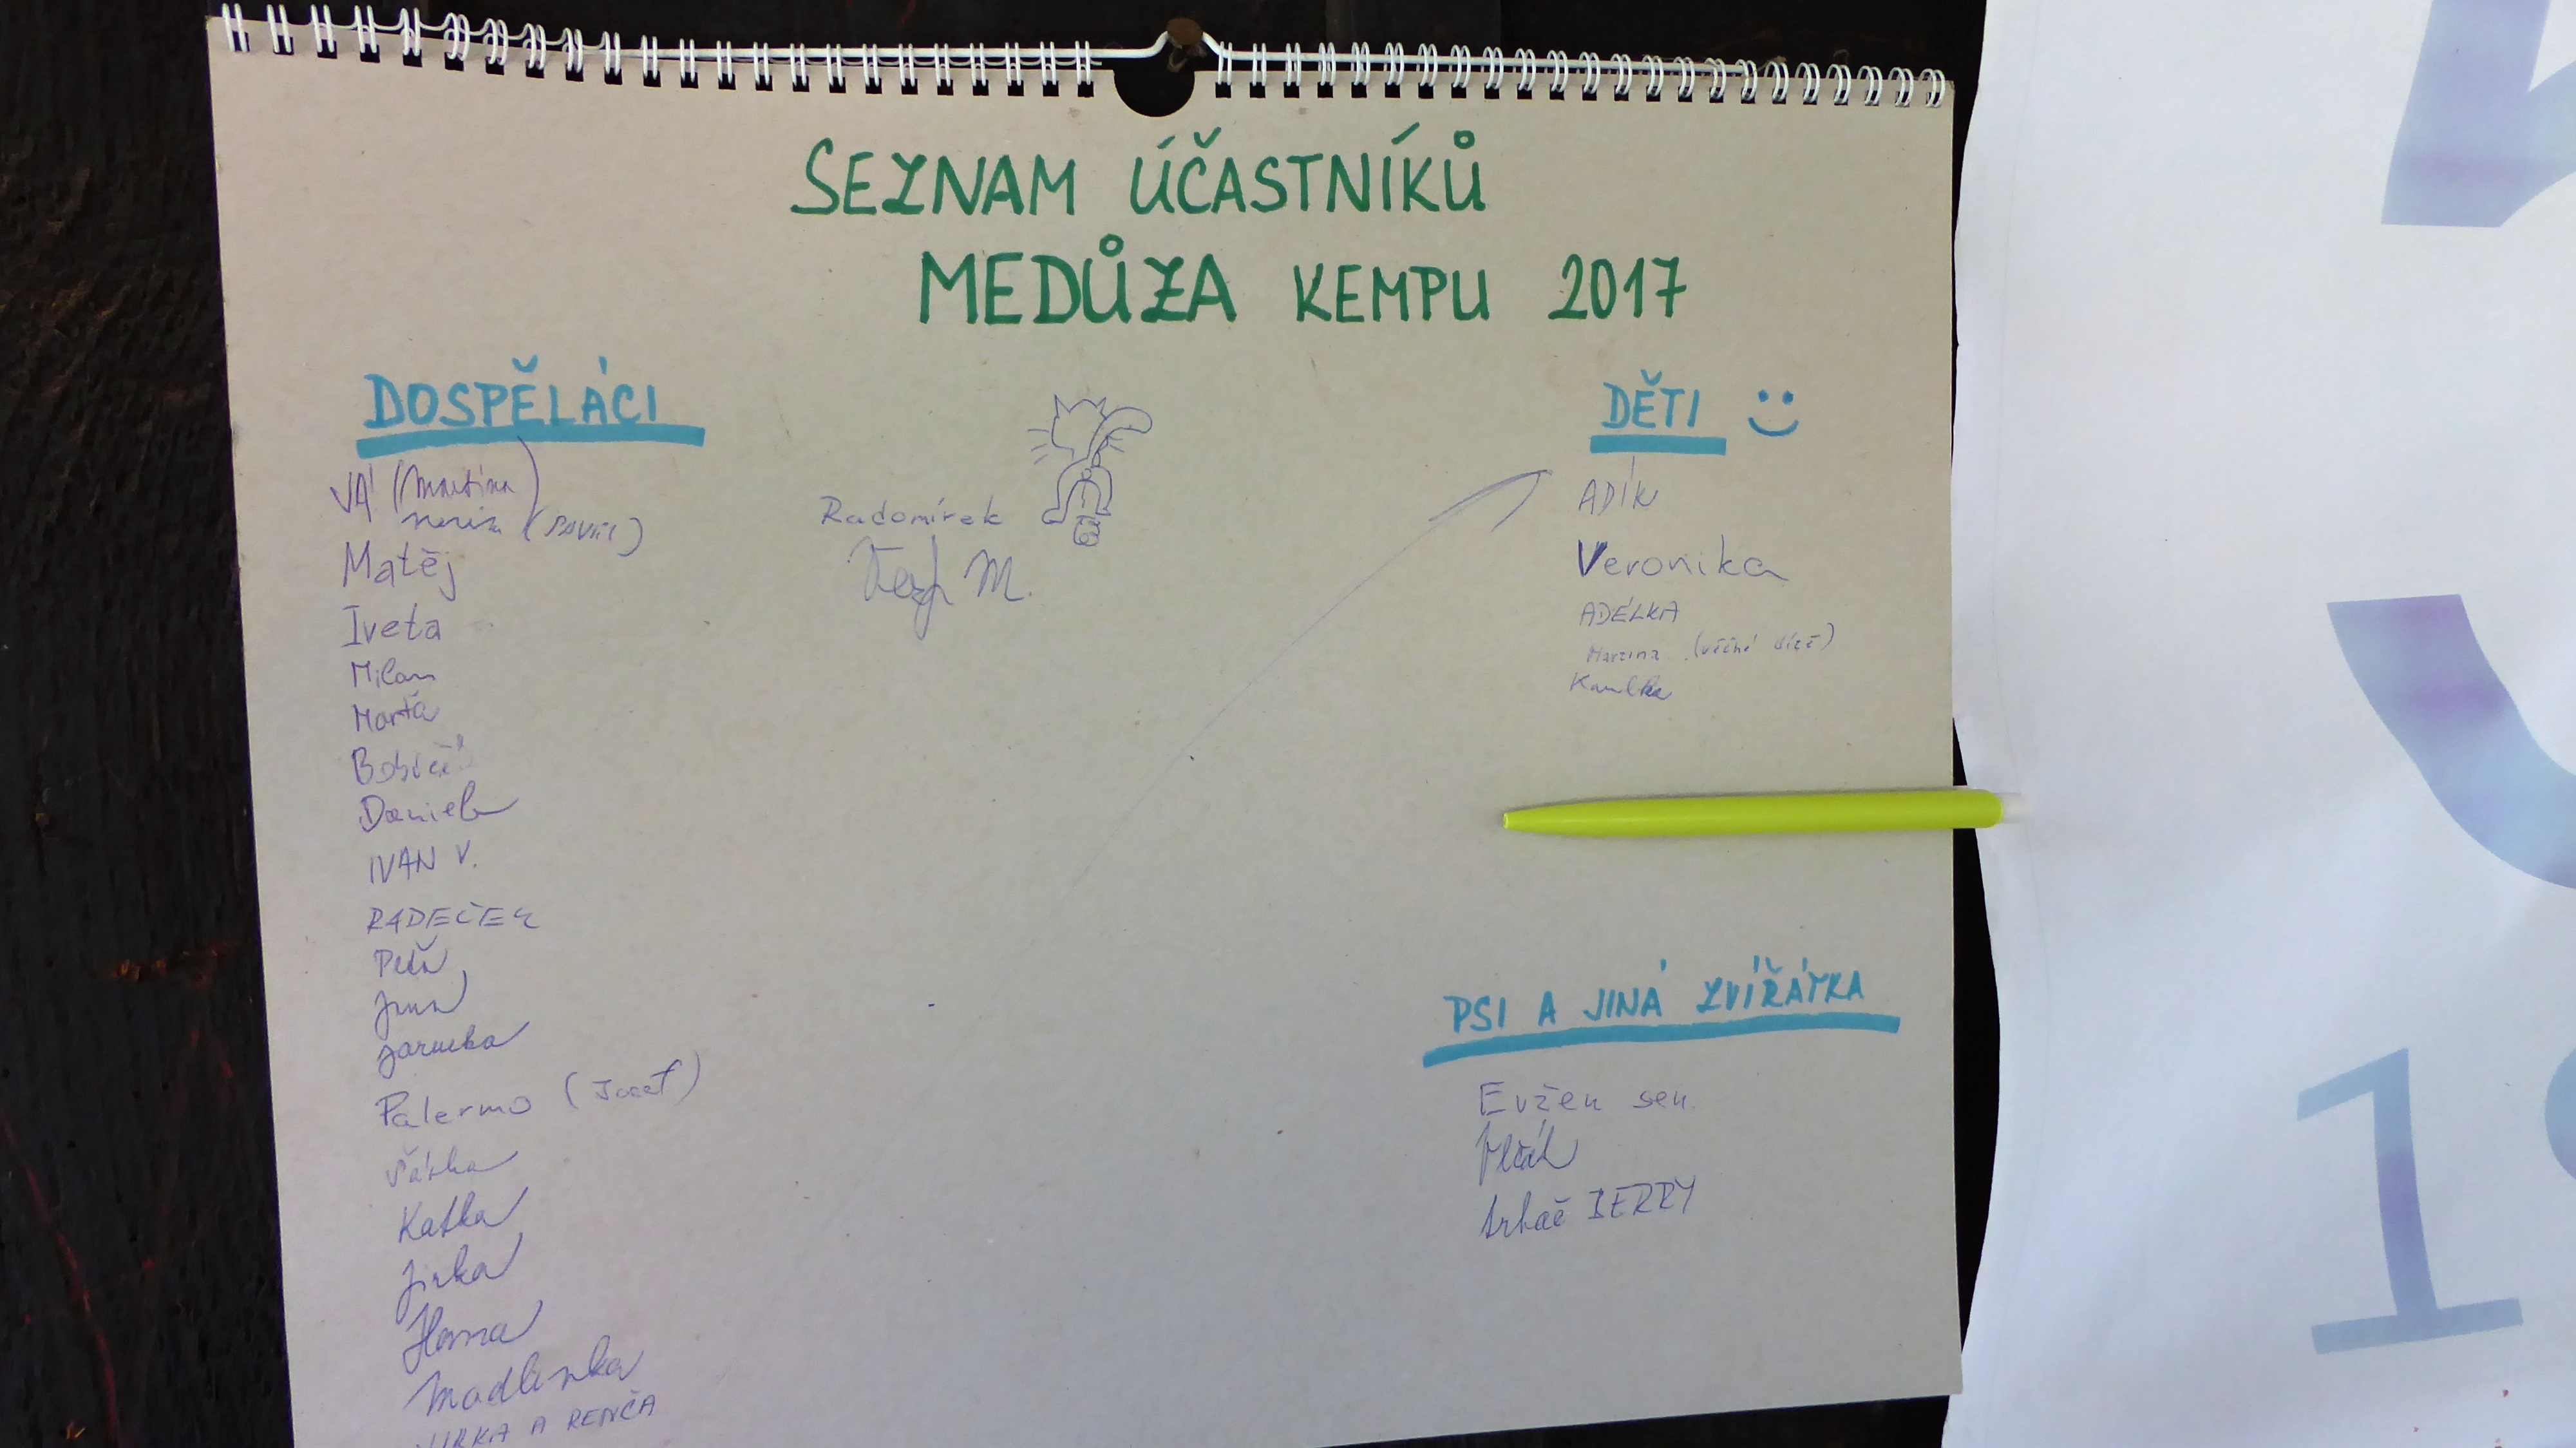 SEZNAM ÚČASTNÍKŮ
MEDŮZA KEMPU 2017
DOSPĚLÁCI
VÁ (Martina)
Matěj
Iveta
Milan
Marťa
Daniela
IVAN V.
RADEČEK
Peťa
Jana
Jarunka
Palermo (Josef)
Šárka
Katka
Jirka
Hana
Madlinka
JIRKA A RENČA
Radomírek
M.
DĚTI
ADÍK
Veronika
ADÉLKA
Martina (věčné dítě)
Kamilka
PSI A JINÁ ZVÍŘÁTKA
Evžen sen.
Vlčák
trhač BERRY
19